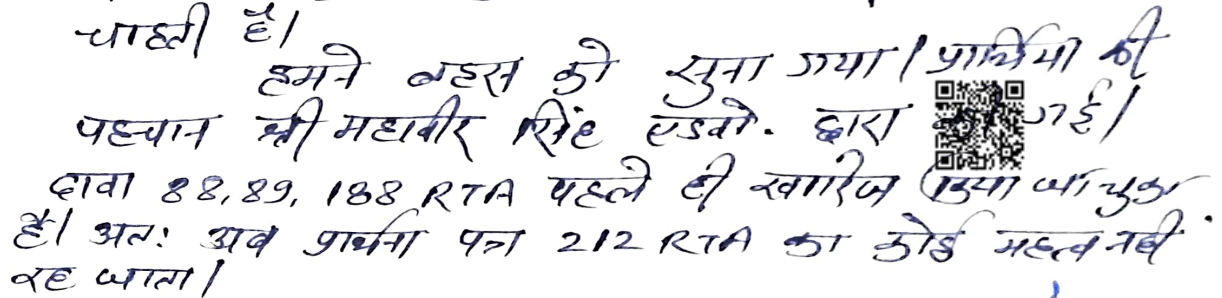 चाहती है।
हमने बहस को सुना गया। प्रार्थिया की
पहचान श्री महावीर सिंह एडवो. द्वारा की गई।
दावा 88,89, 188 RTA पहले ही खारिज किया जा चुका
है। अतः अब प्रार्थना पत्र 212 RTA का कोई महत्व नहीं
रह जाता।